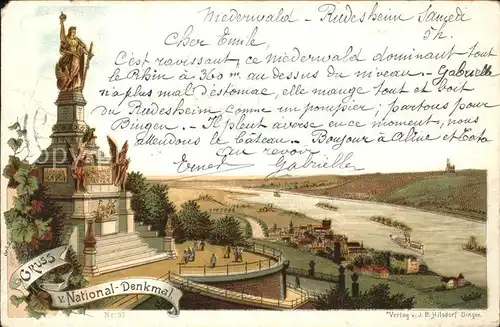 Niederwald - Rudesheim Samedi
9h.
Cher Emile,
C'est ravissant, ce niederwald dominant tout
le Rhin à 300 m. au dessus du niveau - Gabrielle
n'a plus mal d'estomac, elle mange tout et boit
du Rudesheim comme un pompier; partons pour
Bingen. - Il pleut à verse en ce moment, nous
attendons le bateau - Bonjour à Aline et Toto
Au revoir
Ernest Gabrielle
GRUSS
v. National-Denkmal
Nr. 57
Verlag v. J. B. Hilsdorf Bingen.